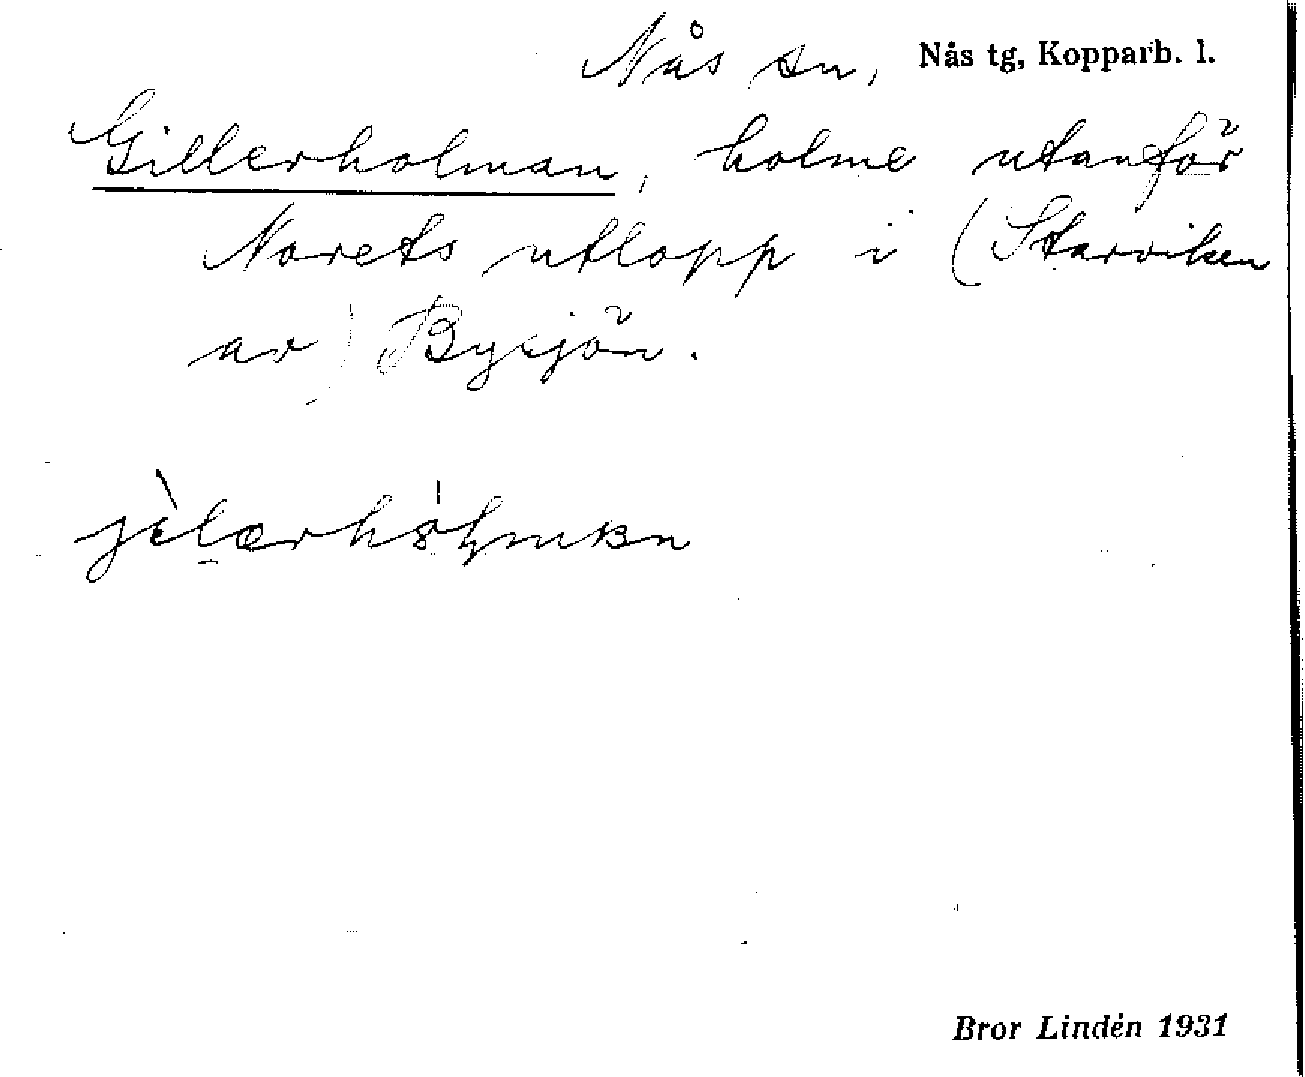 Nås sn, Nås tg, Kopparb. l.
Gillerholman, holme utanför
Norets utlopp i (Starviken
av) Bysjön.
Bror Lindén 1931